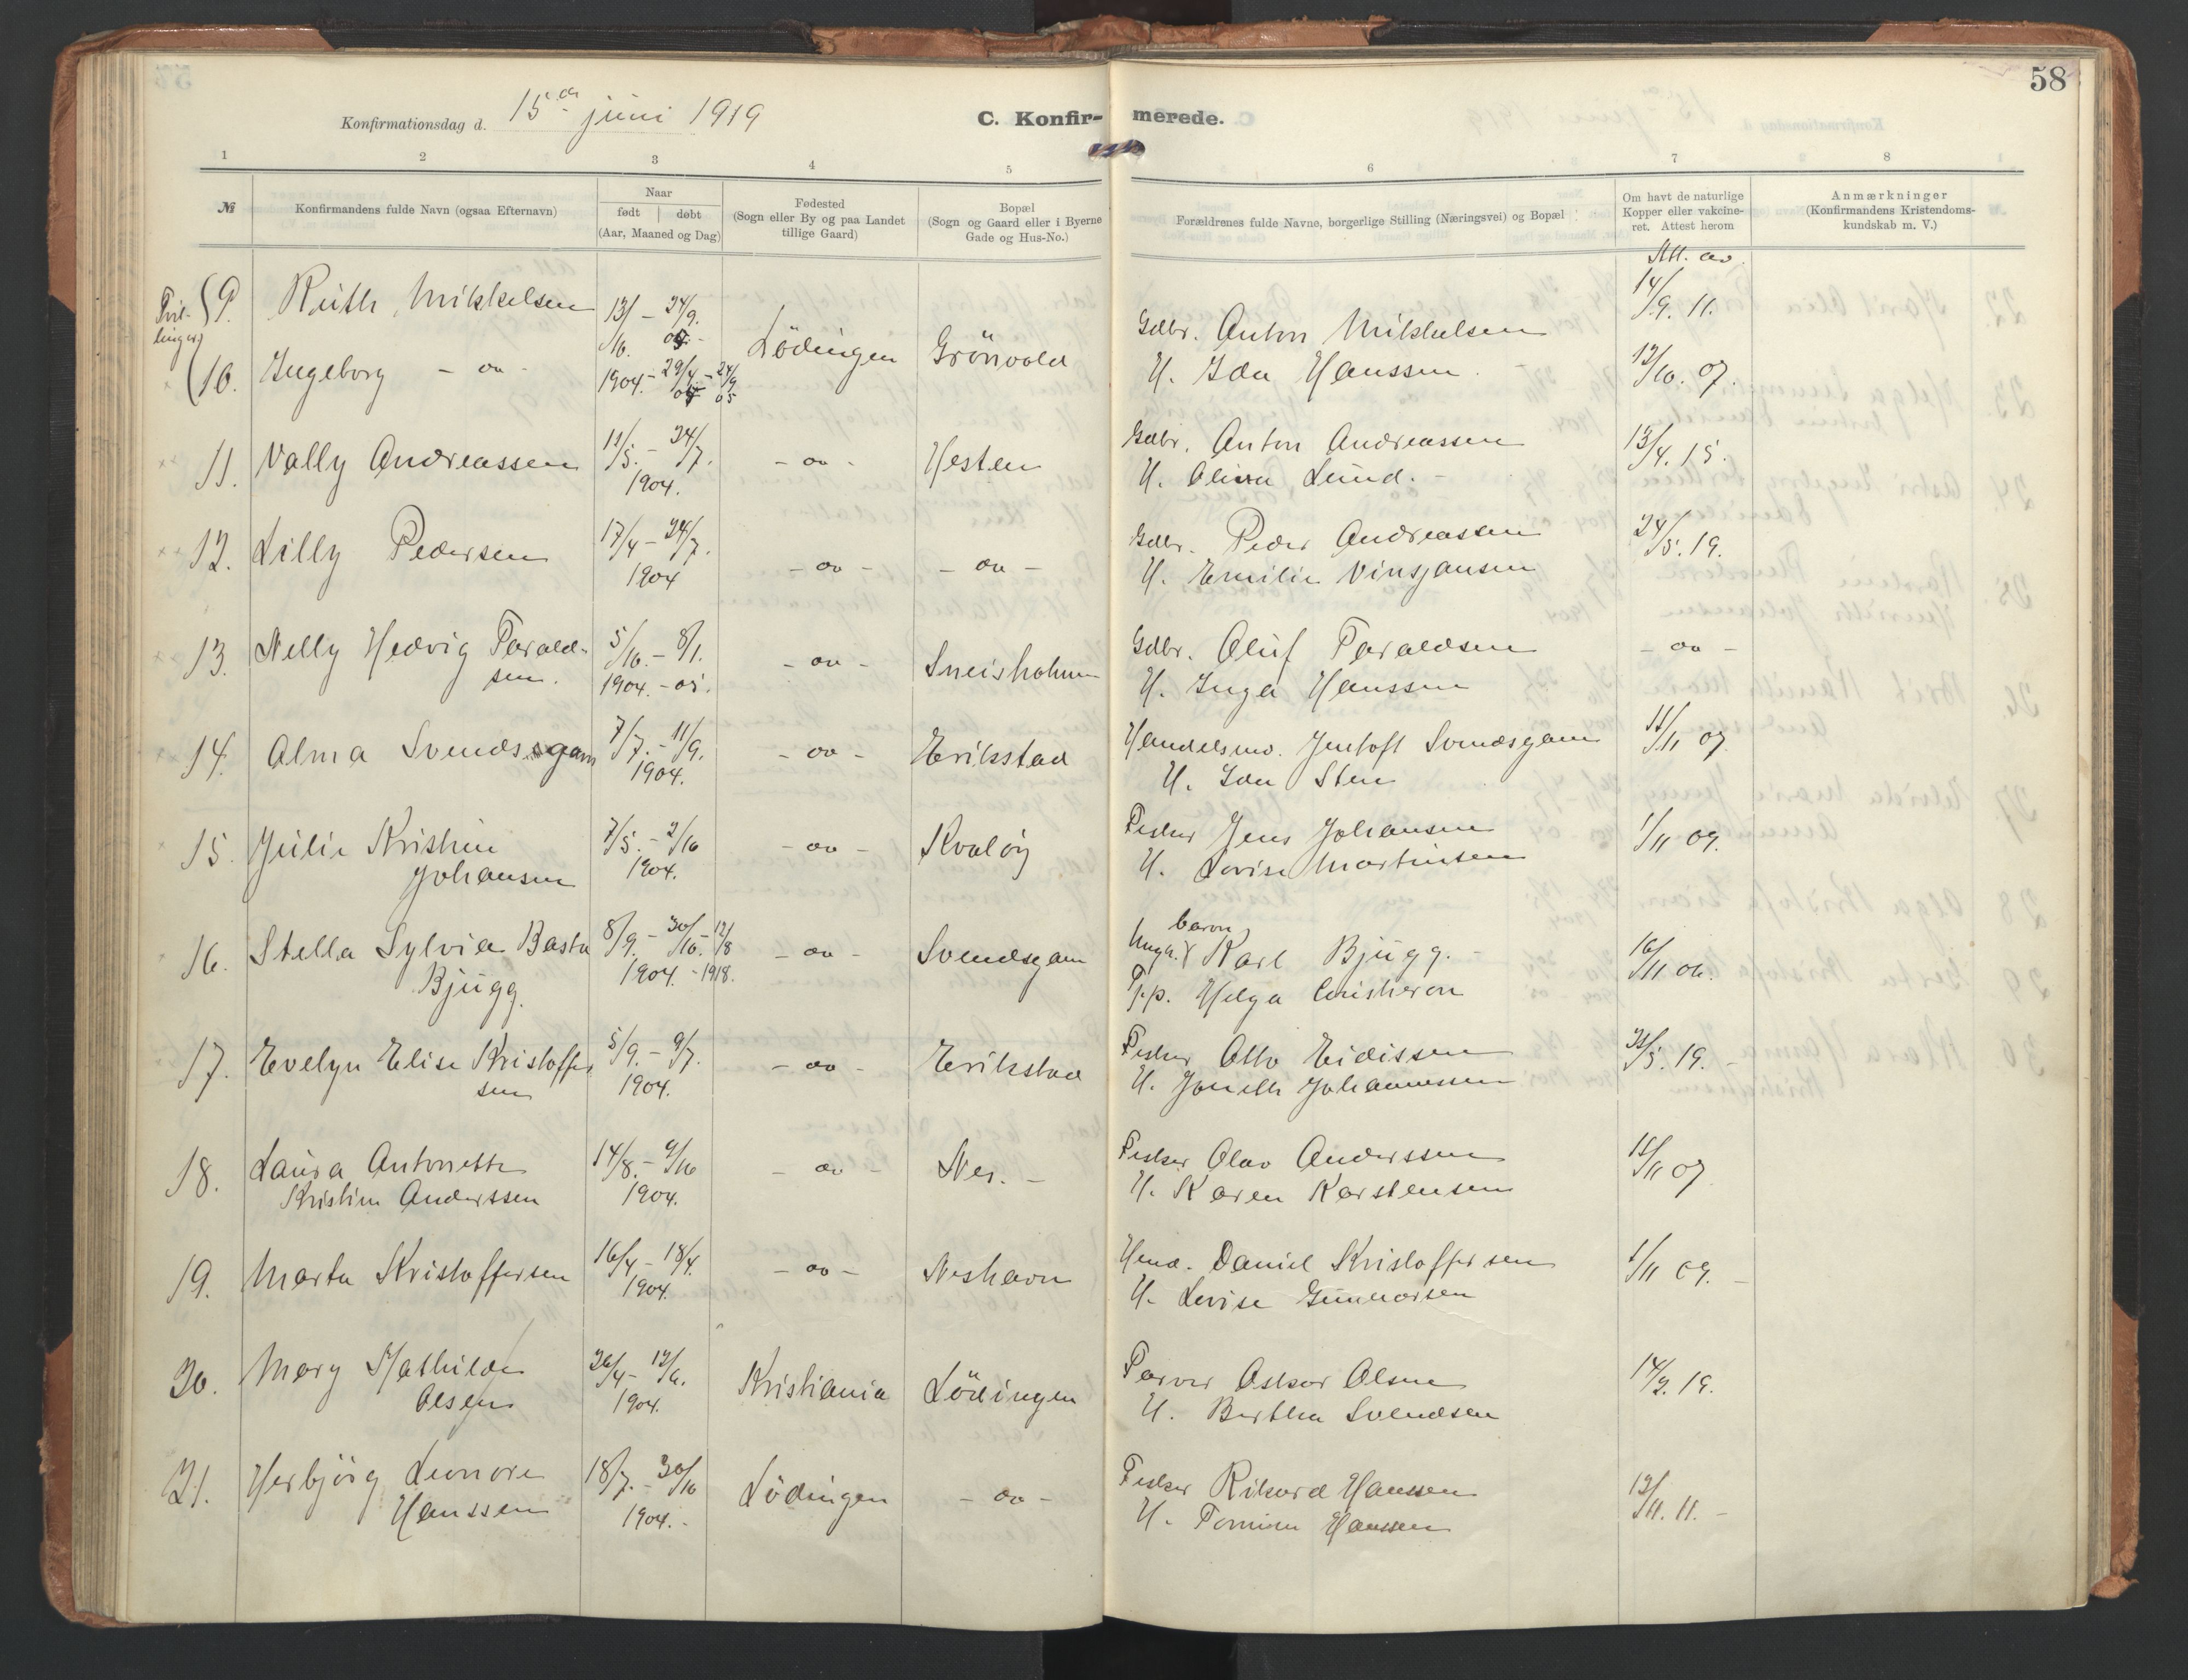 58
Konfirmationsdag d. 15de juni 1919
C. Konfir- merede.
1 2 3 4 5 6 7 8
№
Konfirmandens fulde Navn (ogsaa Efternavn)
Naar
født | døbt
(Aar, Maaned og Dag)
Fødested
(Sogn eller By og paa Landet
tillige Gaard)
Bopæl
(Sogn og Gaard eller i Byerne
Gade og Hus-No.)
Forældrenes fulde Navne, borgerlige Stilling (Næringsvei) og Bopæl
Om havt de naturlige
Kopper eller vakcine-
ret. Attest herom
Anmærkninger
(Konfirmandens Kristendoms-
kundskab m. V.)
Att. av
Tvil-
linger
9. Ruth Mikkelsen 13/ - 24/9. Gdbr. Anton Mikkelsen 14/9. 11.
10. Ingeborg - do - 1904 - 29/4 - 24/9 05 Lödingen Grönvold H. Ida Hanssen 12/10. 07.
11. Vally Andreassen 11/5. - 24/7. - do - Hesten Gdbr. Anton Andreassen 13/4. 15.
1904. H. Olina Lund. -
12. Lilly Pedersen 17/4 - 24/7. - do - - do - Gdbr. Peder Andreassen 24/5. 19.
1904 H. Emilie Vinsjansen
13. Nelly Hedvig Tarald- 5/10. - 8/1. - do - Sneisholmen Gdbr. Oluf Taraldsen - do -
sen. 1904. - 05. H. Inga Hanssen
14. Alma Svendsgam 7/7. - 11/9. - do - Erikstad Handelsmd. Jentoft Svendsgam 11/11 07.
1904. H. Ida Sten
15. Julie Kristine 7/5. - 2/10 - do - Kvaløy Fisker Jens Johansen 1/11 09.
Johansen 1904. H. Lovise Martinsen
16. Stella Sylvia Basta 8/9. - 30/10. - 12/8 - do - Svendsgam Ungk. Karl Bjugg. - 16/11 06.
baron
Bjugg. 1904. - 1918. P.p. Helga
17. Evelyn Elise Kristoffer 5/9. - 9/7. - do - Erikstad Fisker Otto Eidissen 5. 19. -
sen 1904. H. Joneth Johannessen
18. Laura Antonette 14/8. - 9/10 - do - Nes. - Fisker Olav Anderssen 15/11 07
Kristine Anderssen 1904. H. Karen Karstensen
19. Marta Kristoffersen 16/4 - 18/4. - do - Neshavn Hmd. Daniel Kristoffersen 1/11 09. -
1904. H. Lovise Gunnarsen
20. Mary Mathilde 26/4 - 12/6. Kristiania Lödingen Farver Oskar Olsen 14/2. 19.
Olsen 1904. H. Bertha Svendsen
21. Herbjörg Leonore 18/7. - 30/10 Lödingen - do - Fisker Rikard Hanssen 12/11. 11. -
Hanssen 1904. - H. Tomine Hanssen